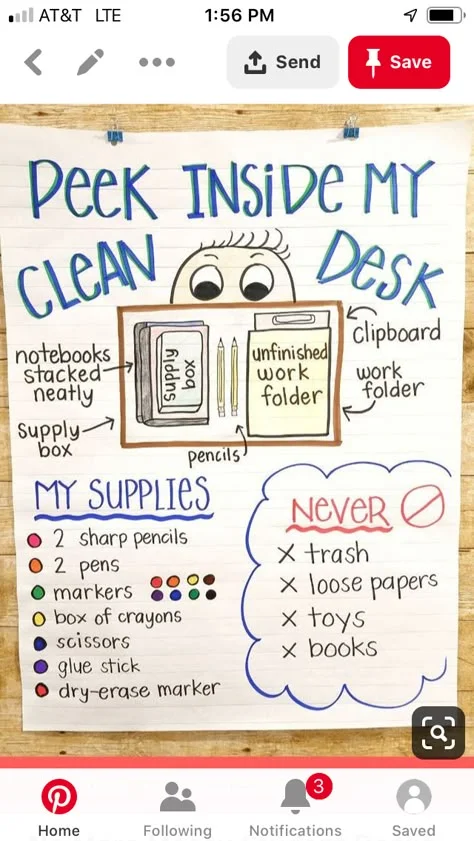 AT&T LTE 1:56 PM
Send Save
PEEK INSIDE MY
CLEAN DESK
notebooks
stacked
neatly
supply
box
supply
box
pencils
unfinished
work
folder
clipboard
work
folder
MY SUPPLIES
2 sharp pencils
2 pens
markers
box of crayons
scissors
glue stick
dry-erase marker
NEVER
X trash
X loose papers
X toys
X books
3
Home Following Notifications Saved